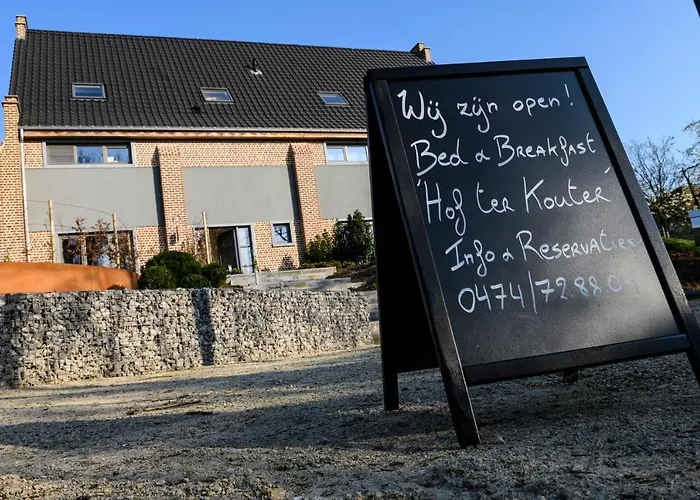 Wij zijn open!
Bed & Breakfast
'Hof ter Kouter'
Info & Reservatie
0474/72.88.04